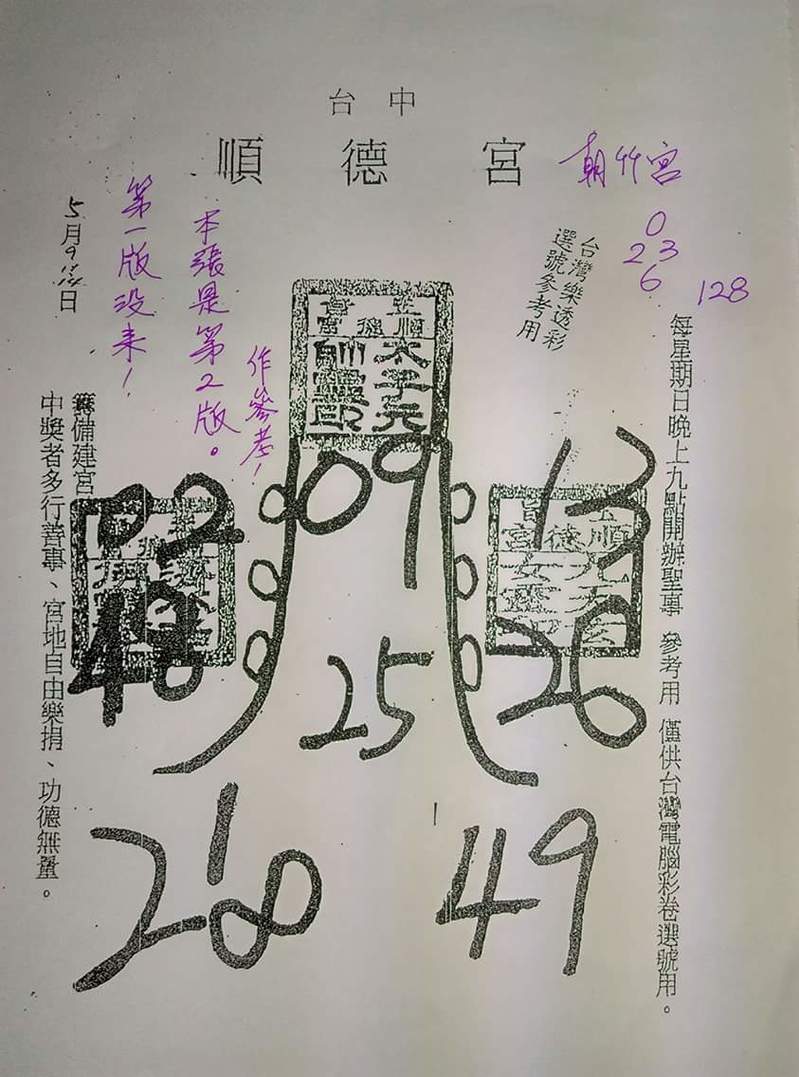 台中
順德宮
朝竹宮
0
23
6
128
台灣樂透彩
選號參考用
每星期日晚上九點開辦聖事 參考用 僅供台灣電腦彩卷選號用。
太子元
帥靈印
09
13
02
26
25
49
作參考!
本張是第2版。
第一版沒来!
5月9日
籌備建宮
中獎者多行善事、宮地自由樂捐、功德無量。